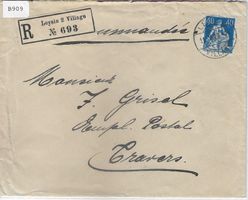 B909
R
Leysin 2 Village
№ 693
Recommandée
40 40
Monsieur
F. Grisel
Empl. Postal
Travers.